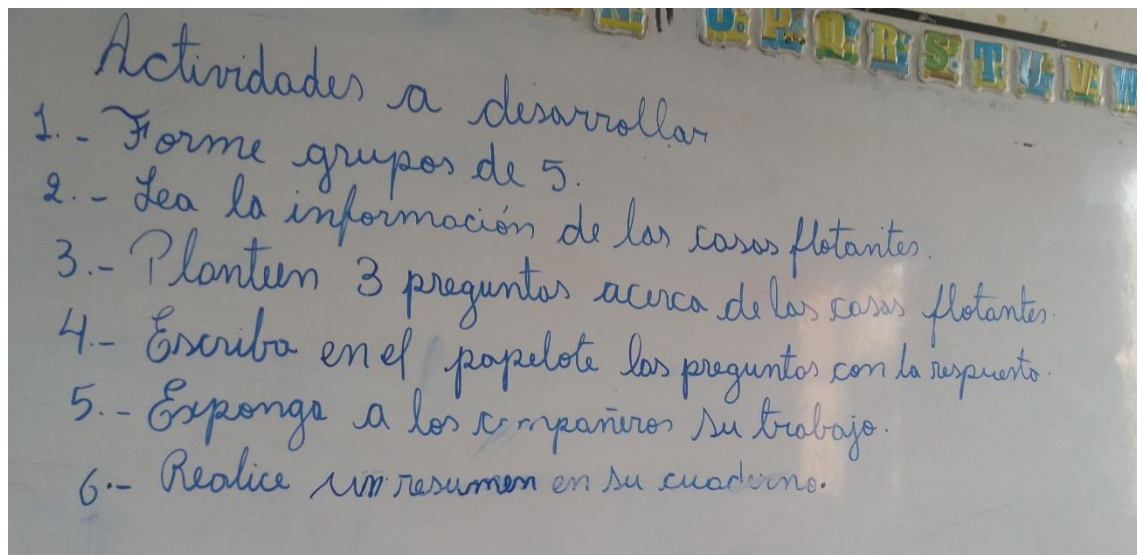 N O P Q R S T U V W
Actividades a desarrollar
1.- Forme grupos de 5.
2.- Lea la información de las casas flotantes.
3.- Planteen 3 preguntas acerca de las casas flotantes.
4.- Escriba en el papelote las preguntas con la respuesta.
5.- Exponga a los compañeros su trabajo.
6.- Realice un resumen en su cuaderno.